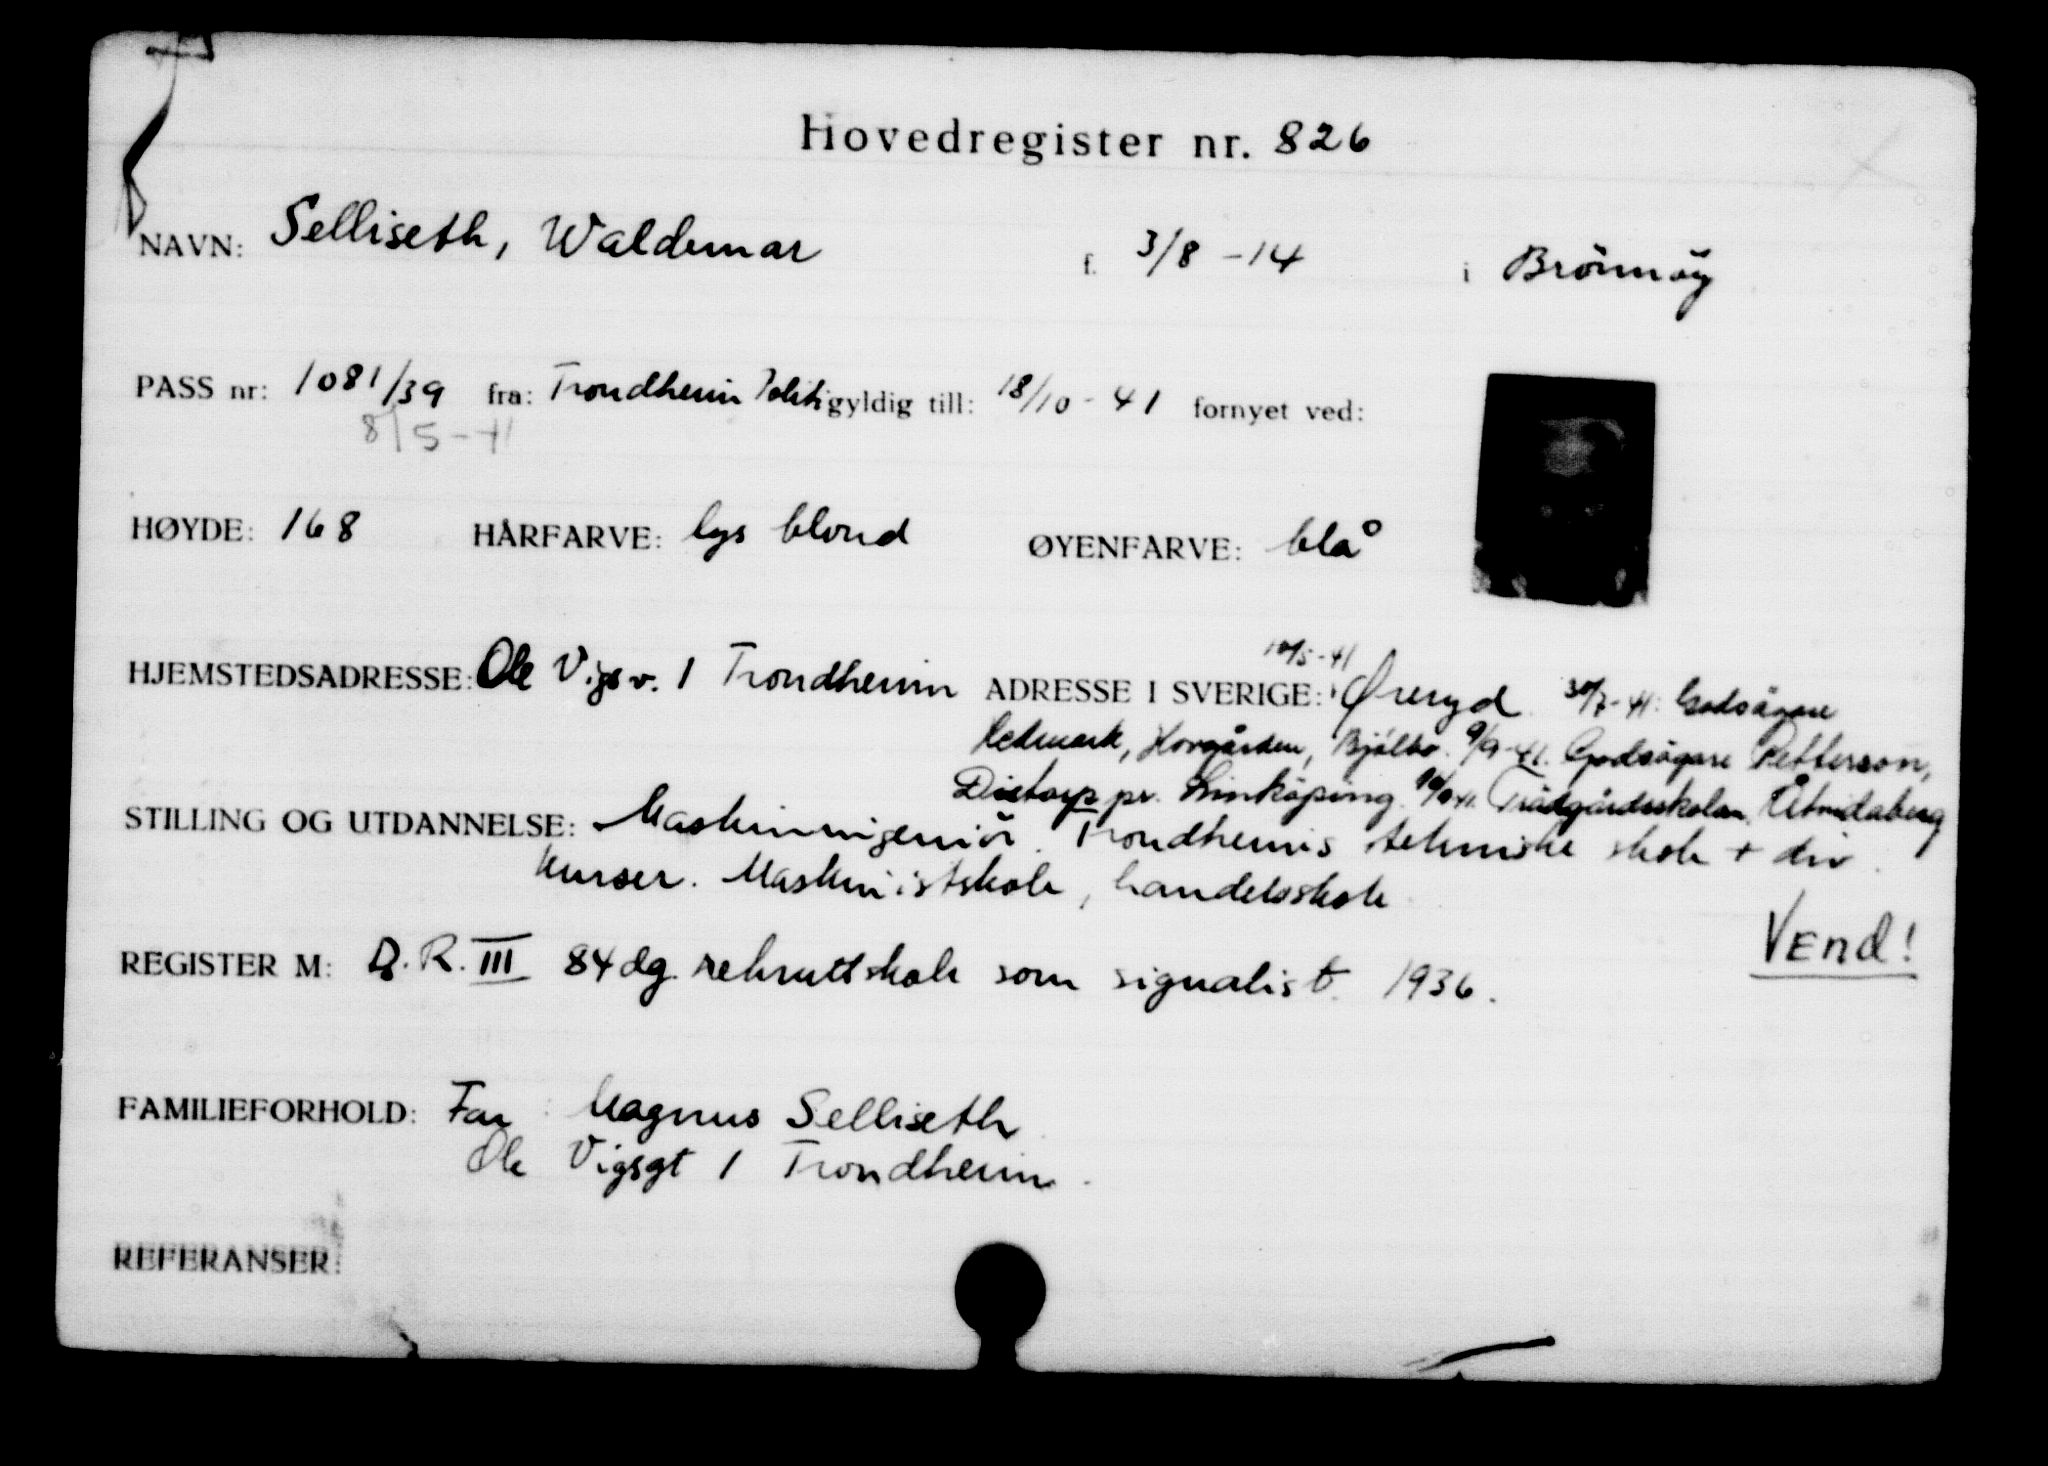 Hovedregister nr. 826
NAVN: Selliseth, Waldemar f. 3/8 -14 i Brönnöy
PASS nr: 1081/39 fra: Trondheim Politi gyldig till: 18/10 - 41 fornyet ved:
8/5 - 41
HØYDE: 168 HÅRFARVE: lys blond ØYENFARVE: blå
10/5 - 41
HJEMSTEDSADRESSE: Ole Vigs v. 1 Trondheim ADRESSE I SVERIGE: Øreryd 30/7 - 41: Godsägare
Hedmark, Hovgården, Bjälbo. 9/9 - 41. Godsägare Petterson,
pr. Linköping. Trädgårdsskolan, Åtvidaberg
STILLING OG UTDANNELSE: Maskiningeniör. Trondheims tekniske skole + div.
kurser. Maskinistskole, handelsskole
Vend!
REGISTER M: D. R. III 84 dg. rekruttskole som signalist. 1936.
FAMILIEFORHOLD: Far: Magnus Selliseth
Ole Vigsgt 1 Trondheim.
REFERANSER: